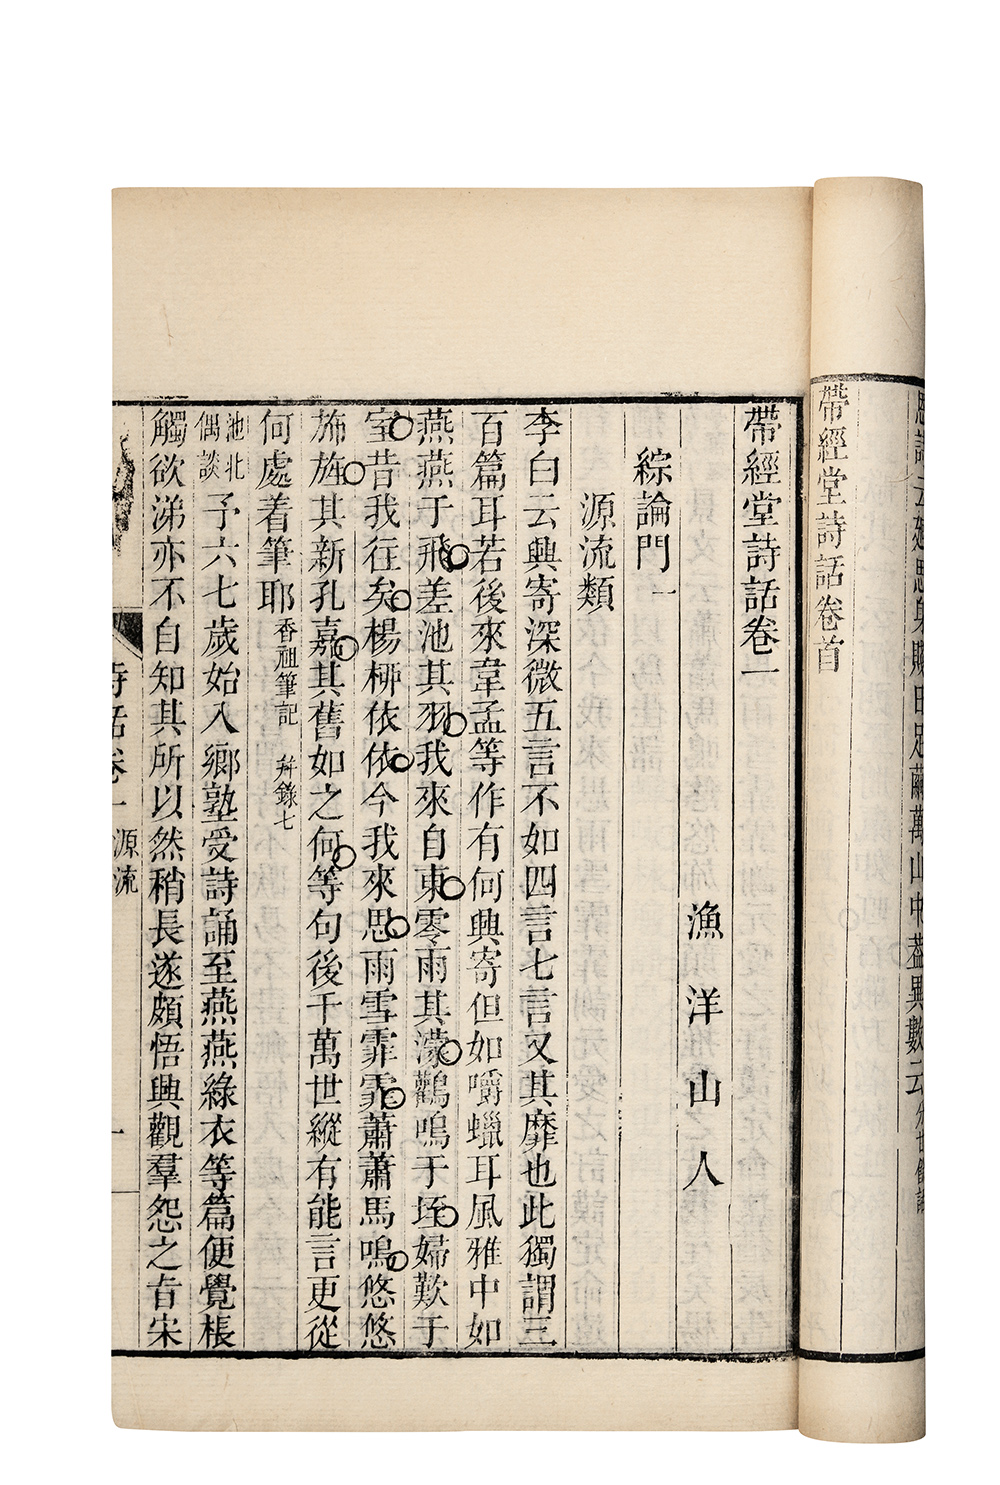 帶經堂詩話卷首
帶經堂詩話卷一
漁洋山人
綜論門一
源流類
李白云興寄深微五言不如四言七言又其靡也此獨謂三
百篇耳若後來韋孟等作有何興寄但如嚼蠟耳風雅中如
燕燕于飛差池其羽我來自東零雨其濛鸛鳴于垤婦歎于
室昔我往矣楊桺依依今我來思雨雪霏霏蕭蕭馬鳴悠悠
斾旌其新孔嘉其舊如之何等句後千萬世縱有能言更從
何處着筆耶香祖筆記 幷錄七
池北偶談予六七歲始入鄉塾受詩誦至燕燕綠衣等篇便覺棖
觸欲涕亦不自知其所以然稍長遂頗悟興觀羣怨之旨宋
詩話卷一 源流 一